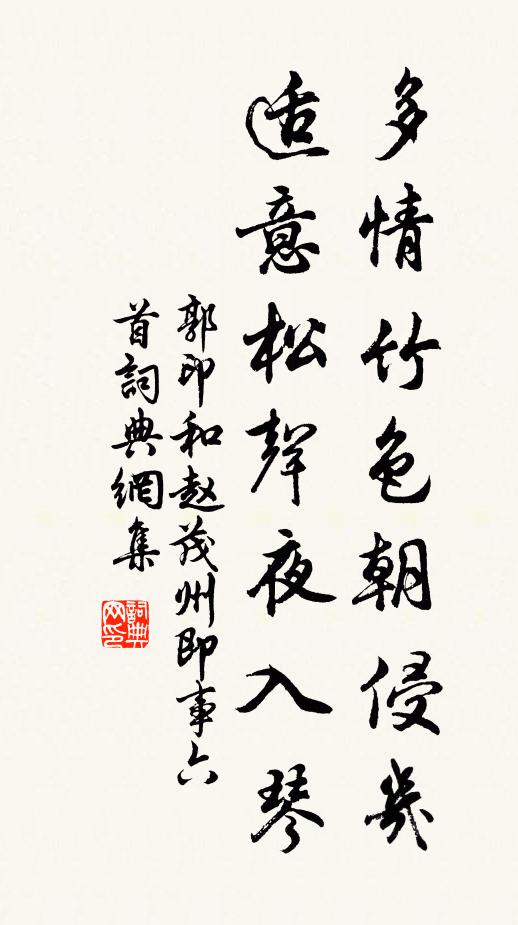 多情竹色朝侵幾
适意松聲夜入琴
郭印和赵茂州即事六
首詞典網集
詞典
网印